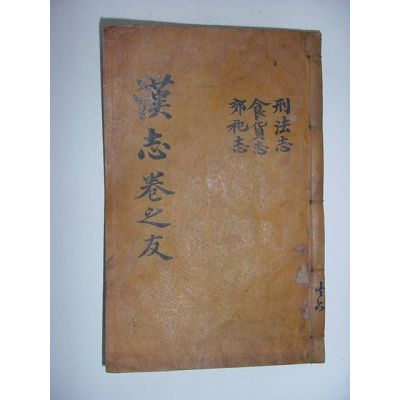 刑法志
食貨志
郊祀志
漢志卷之友